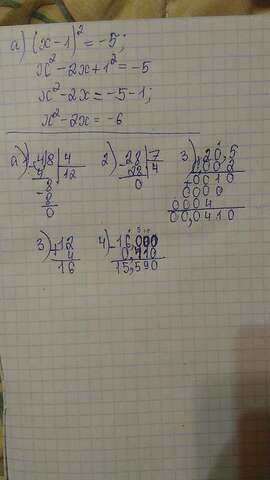 а) (x-1)² = -5;
x² - 2x + 1² = -5
x² - 2x = -5 - 1;
x² - 2x = -6
а) 1) 48 | 4
4 | 12
- 8
8
0
2) - 28 | 7
28 | 4
0
3) 20,5
0,02
0010
0000
0004
00,0410
3) + 12
4
16
4) - 16,000
0,410
15,590